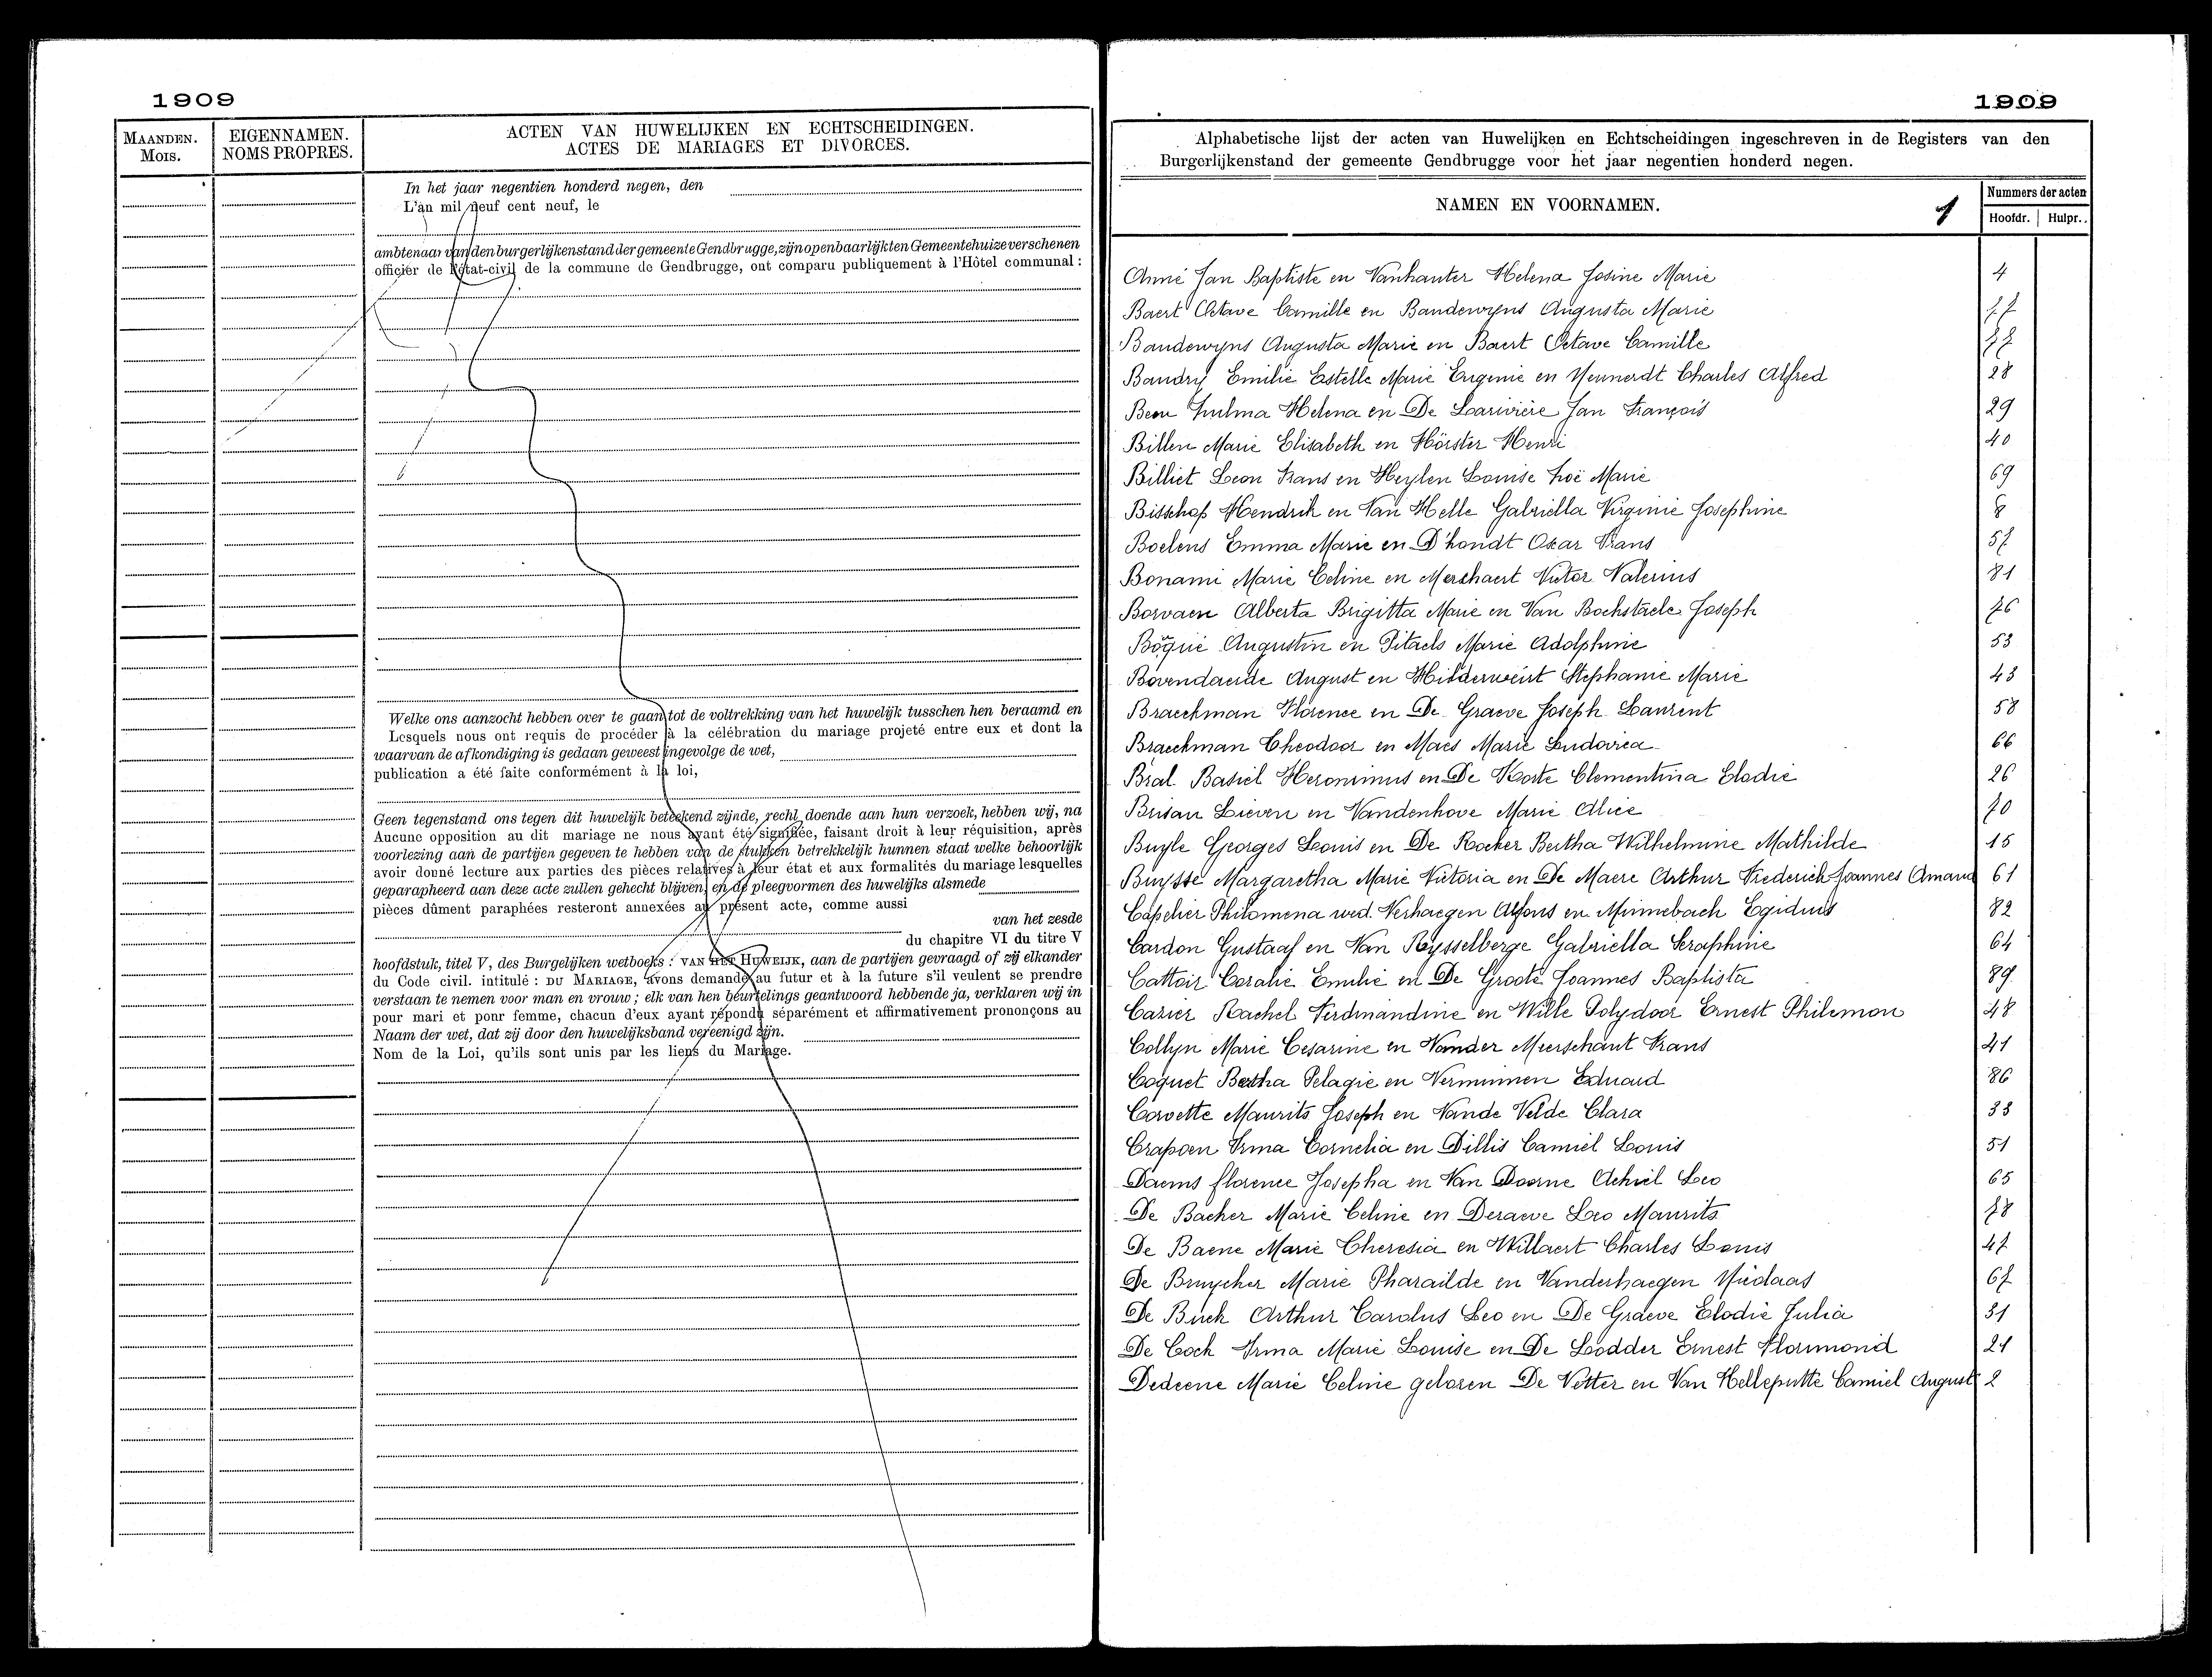 1909
MAANDEN.
MOIS.
EIGENNAMEN.
NOMS PROPRES.
ACTEN VAN HUWELIJKEN EN ECHTSCHEIDINGEN.
ACTES DE MARIAGES ET DIVORCES.
In het jaar negentien honderd negen, den
L'an mil neuf cent neuf, le
ambtenaar van den burgerlijkenstand der gemeente Gendbrugge, zijn openbaarlijk ten Gemeentehuize verschenen
officier de l'état-civil de la commune de Gendbrugge, ont comparu publiquement à l'Hôtel communal :
Welke ons aanzocht hebben over te gaan tot de voltrekking van het huwelijk tusschen hen beraamd en
Lesquels nous ont requis de procéder à la célébration du mariage projeté entre eux et dont la
waarvan de afkondiging is gedaan geweest ingevolge de wet,
publication a été faite conformément à la loi,
Geen tegenstand ons tegen dit huwelijk beteekend zijnde, recht doende aan hun verzoek, hebben wij, na
Aucune opposition au dit mariage ne nous ayant été signifiée, faisant droit à leur réquisition, après
voorlezing aan de partijen gegeven te hebben van de stukken betrekkelijk hunnen staat welke behoorlijk
avoir donné lecture aux parties des pièces relatives à leur état et aux formalités du mariage lesquelles
geparapheerd aan deze acte zullen gehecht blijven, en de pleegvormen des huwelijks alsmede
pièces dûment paraphées resteront annexées au présent acte, comme aussi
van het zesde
du chapitre VI du titre V
hoofdstuk, titel V, des Burgelijken wetboeks : VAN HET HUWELIJK, aan de partijen gevraagd of zij elkander
du Code civil. intitulé : DU MARIAGE, avons demandé au futur et à la future s'il veulent se prendre
verstaan te nemen voor man en vrouw ; elk van hen beurtelings geantwoord hebbende ja, verklaren wij in
pour mari et pour femme, chacun d'eux ayant répondu séparément et affirmativement prononçons au
Naam der wet, dat zij door den huwelijksband vereenigd zijn.
Nom de la Loi, qu'ils sont unis par les liens du Mariage.
1909
Alphabetische lijst der acten van Huwelijken en Echtscheidingen ingeschreven in de Registers van den
Burgerlijkenstand der gemeente Gendbrugge voor het jaar negentien honderd negen.
NAMEN EN VOORNAMEN. 1
Nummers der acten
Hoofdr. Hulpr.
Anné Jan Baptiste en Vanhauter Helena Josine Marie 4
Baert Octave Camille en Baudewyns Augusta Marie 77
Baudewyns Augusta Marie en Baert Octave Camille 77
Baudry Emilie Estelle Marie Eugenie en Meunerdt Charles Alfred 28
Zulma Helena en De Larivière Jan François 29
Billen Marie Elisabeth en Hörster Henri 40
Billiet Leon Frans en Heylen Louise Zoë Marie 69
Bisschop Hendrik en Van Helle Gabriella Virginie Josephine 8
Boelens Emma Marie en D'hondt Oscar Frans 57
Bonami Marie Celine en Merchaert Victor Valerius 81
Borvaen Alberta Brigitta Marie en Van Bockstaele Joseph 76
Augustin en Pitaels Marie Adolphine 53
Bovendaerde August en Hilderweirt Stephanie Marie 43
Braeckman Florence en De Graeve Joseph Laurent 58
Braeckman Theodoor en Maes Marie Ludovica 66
Bral Basiel Heronimus en De Korte Clementina Elodie 26
Brisan Lieven en Vandenhove Marie Alice 70
Buyle Georges Louis en De Rocker Bertha Wilhelmine Mathilde 15
Buysse Margaretha Marie Victoria en De Maere Arthur Frederich Joannes Amand 61
Capelier Philomena wed. Verhaegen Alfons en Minnebach Egidius 82
Cardon Gustaaf en Van Rysselberge Gabriella Seraphine 64
Cattoir Coralie Emilie en De Groote Joannes Baptista 89
Carier Rachel Ferdinandine en Wille Polydoor Ernest Philemon 48
Collyn Marie Cesarine en Vander Meerschaut Frans 41
Coquet Bertha Pelagie en Vermimmen Eduard 86
Corvette Maurits Joseph en Vande Velde Clara 33
Crapoen Irma Cornelia en Dillis Camiel Louis 51
Daems florence Josepha en Van Doorne Achiel Leo 65
De Backer Marie Celine en Deraeve Leo Maurits 78
De Baene Marie Theresia en Willaert Charles Louis 47
De Bruycker Marie Pharailde en Vanderhaegen Nicolaas 67
De Buck Arthur Carolus Leo en De Graeve Elodie Julia 31
De Cock Irma Marie Louise en De Lodder Ernest Florimond 21
Dedeene Marie Celine geboren De Vetter en Van Helleputte Camiel August 2